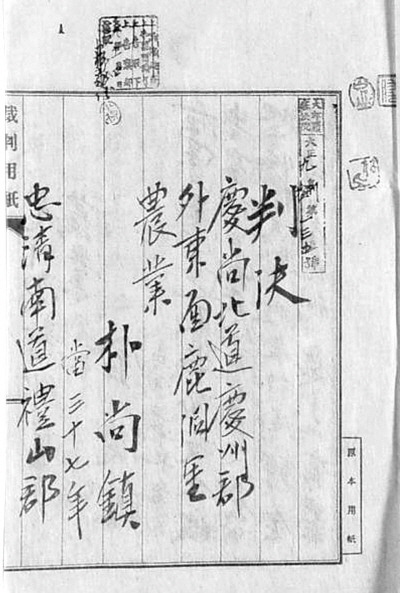 判決
慶尚北道慶州郡
外東面鹿洞里
農業
朴尚鎮
當三十七年
忠清南道禮山郡
裁判用紙
原本用紙